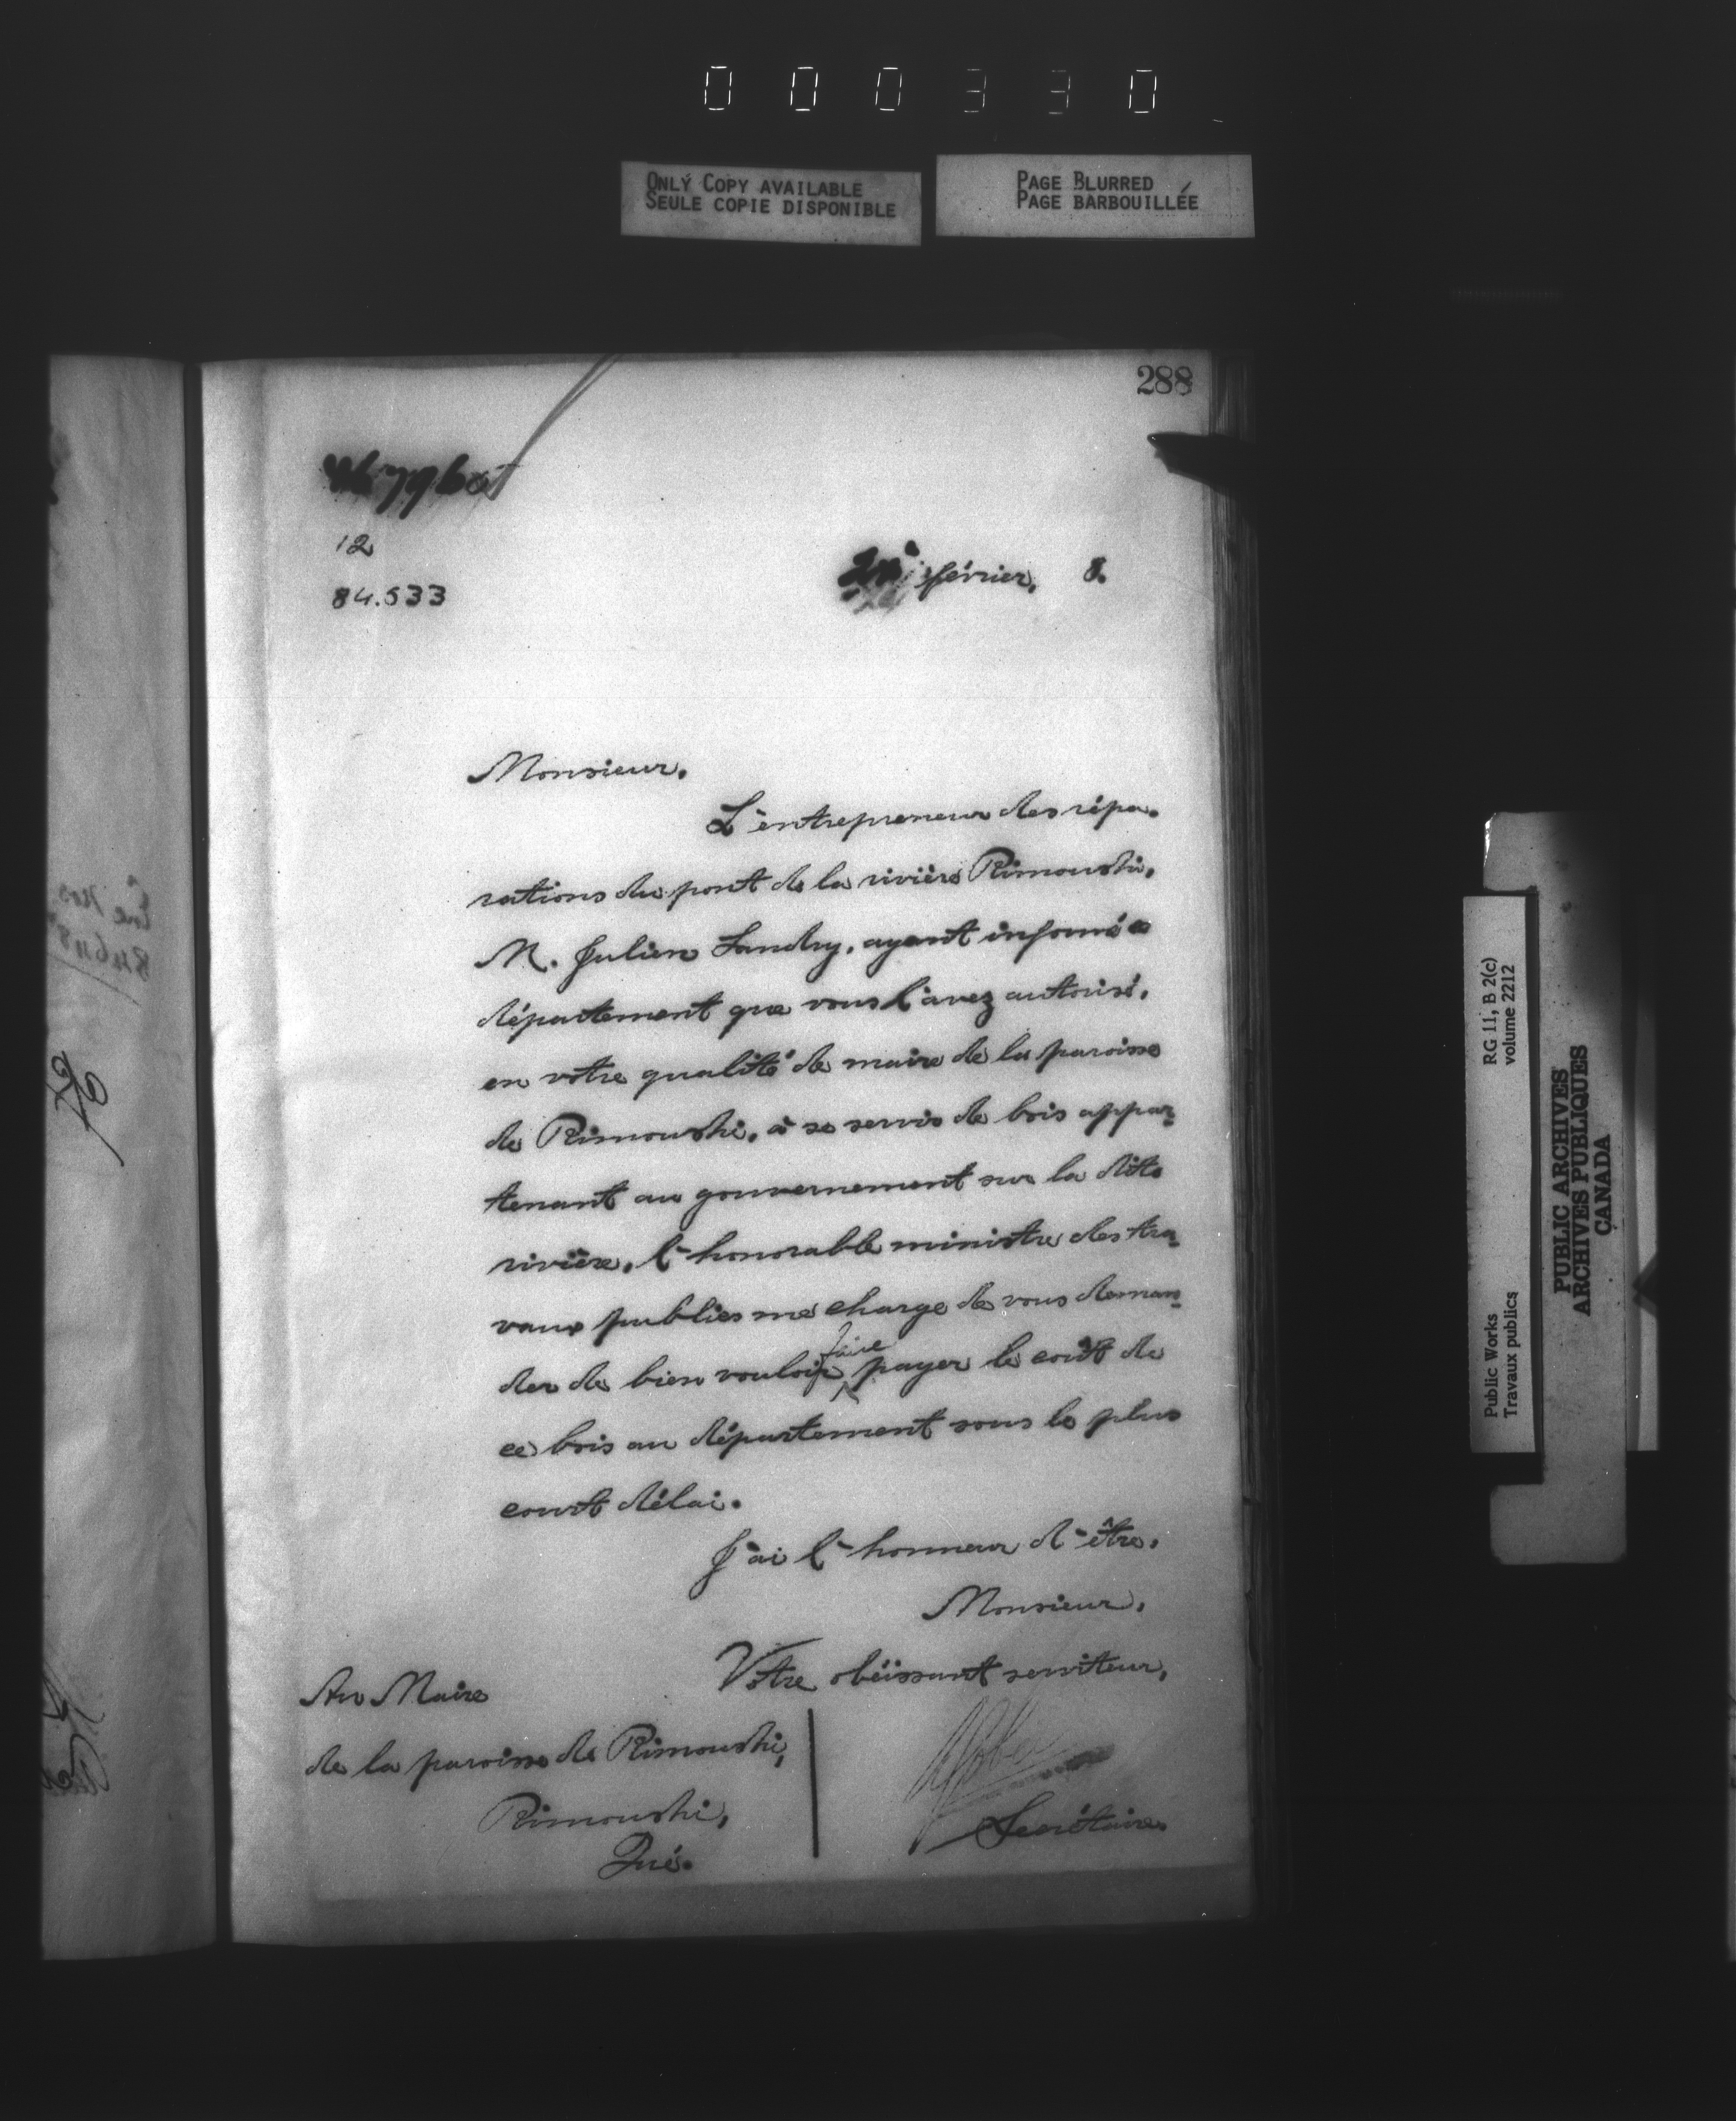 000330
ONLY COPY AVAILABLE
SEULE COPIE DISPONIBLE
PAGE BLURRED
PAGE BARBOUILLÉE
288
12
84.533
février, 8.
Monsieur,
L'entrepreneur des répa-
rations du pont de la rivière Rimouski,
M. Julien Landry, ayant informé
département que vous l'avez autorisé,
en votre qualité de maire de la paroisse
de Rimouski, à se servir de bois appar-
tenant au gouvernement sur la dite
rivière, l'honorable ministre des tra-
vaux publics me charge de vous deman-
der de bien vouloir faire payer le coût de
ce bois au département sous le plus
court délai.
J'ai l'honneur d'être,
Monsieur,
Votre obéissant serviteur,
Secrétaire
Au Maire
de la paroisse de Rimouski,
Rimouski,
Qué.
RG 11, B 2(c)
volume 2212
Public Works
Travaux publics
PUBLIC ARCHIVES
ARCHIVES PUBLIQUES
CANADA